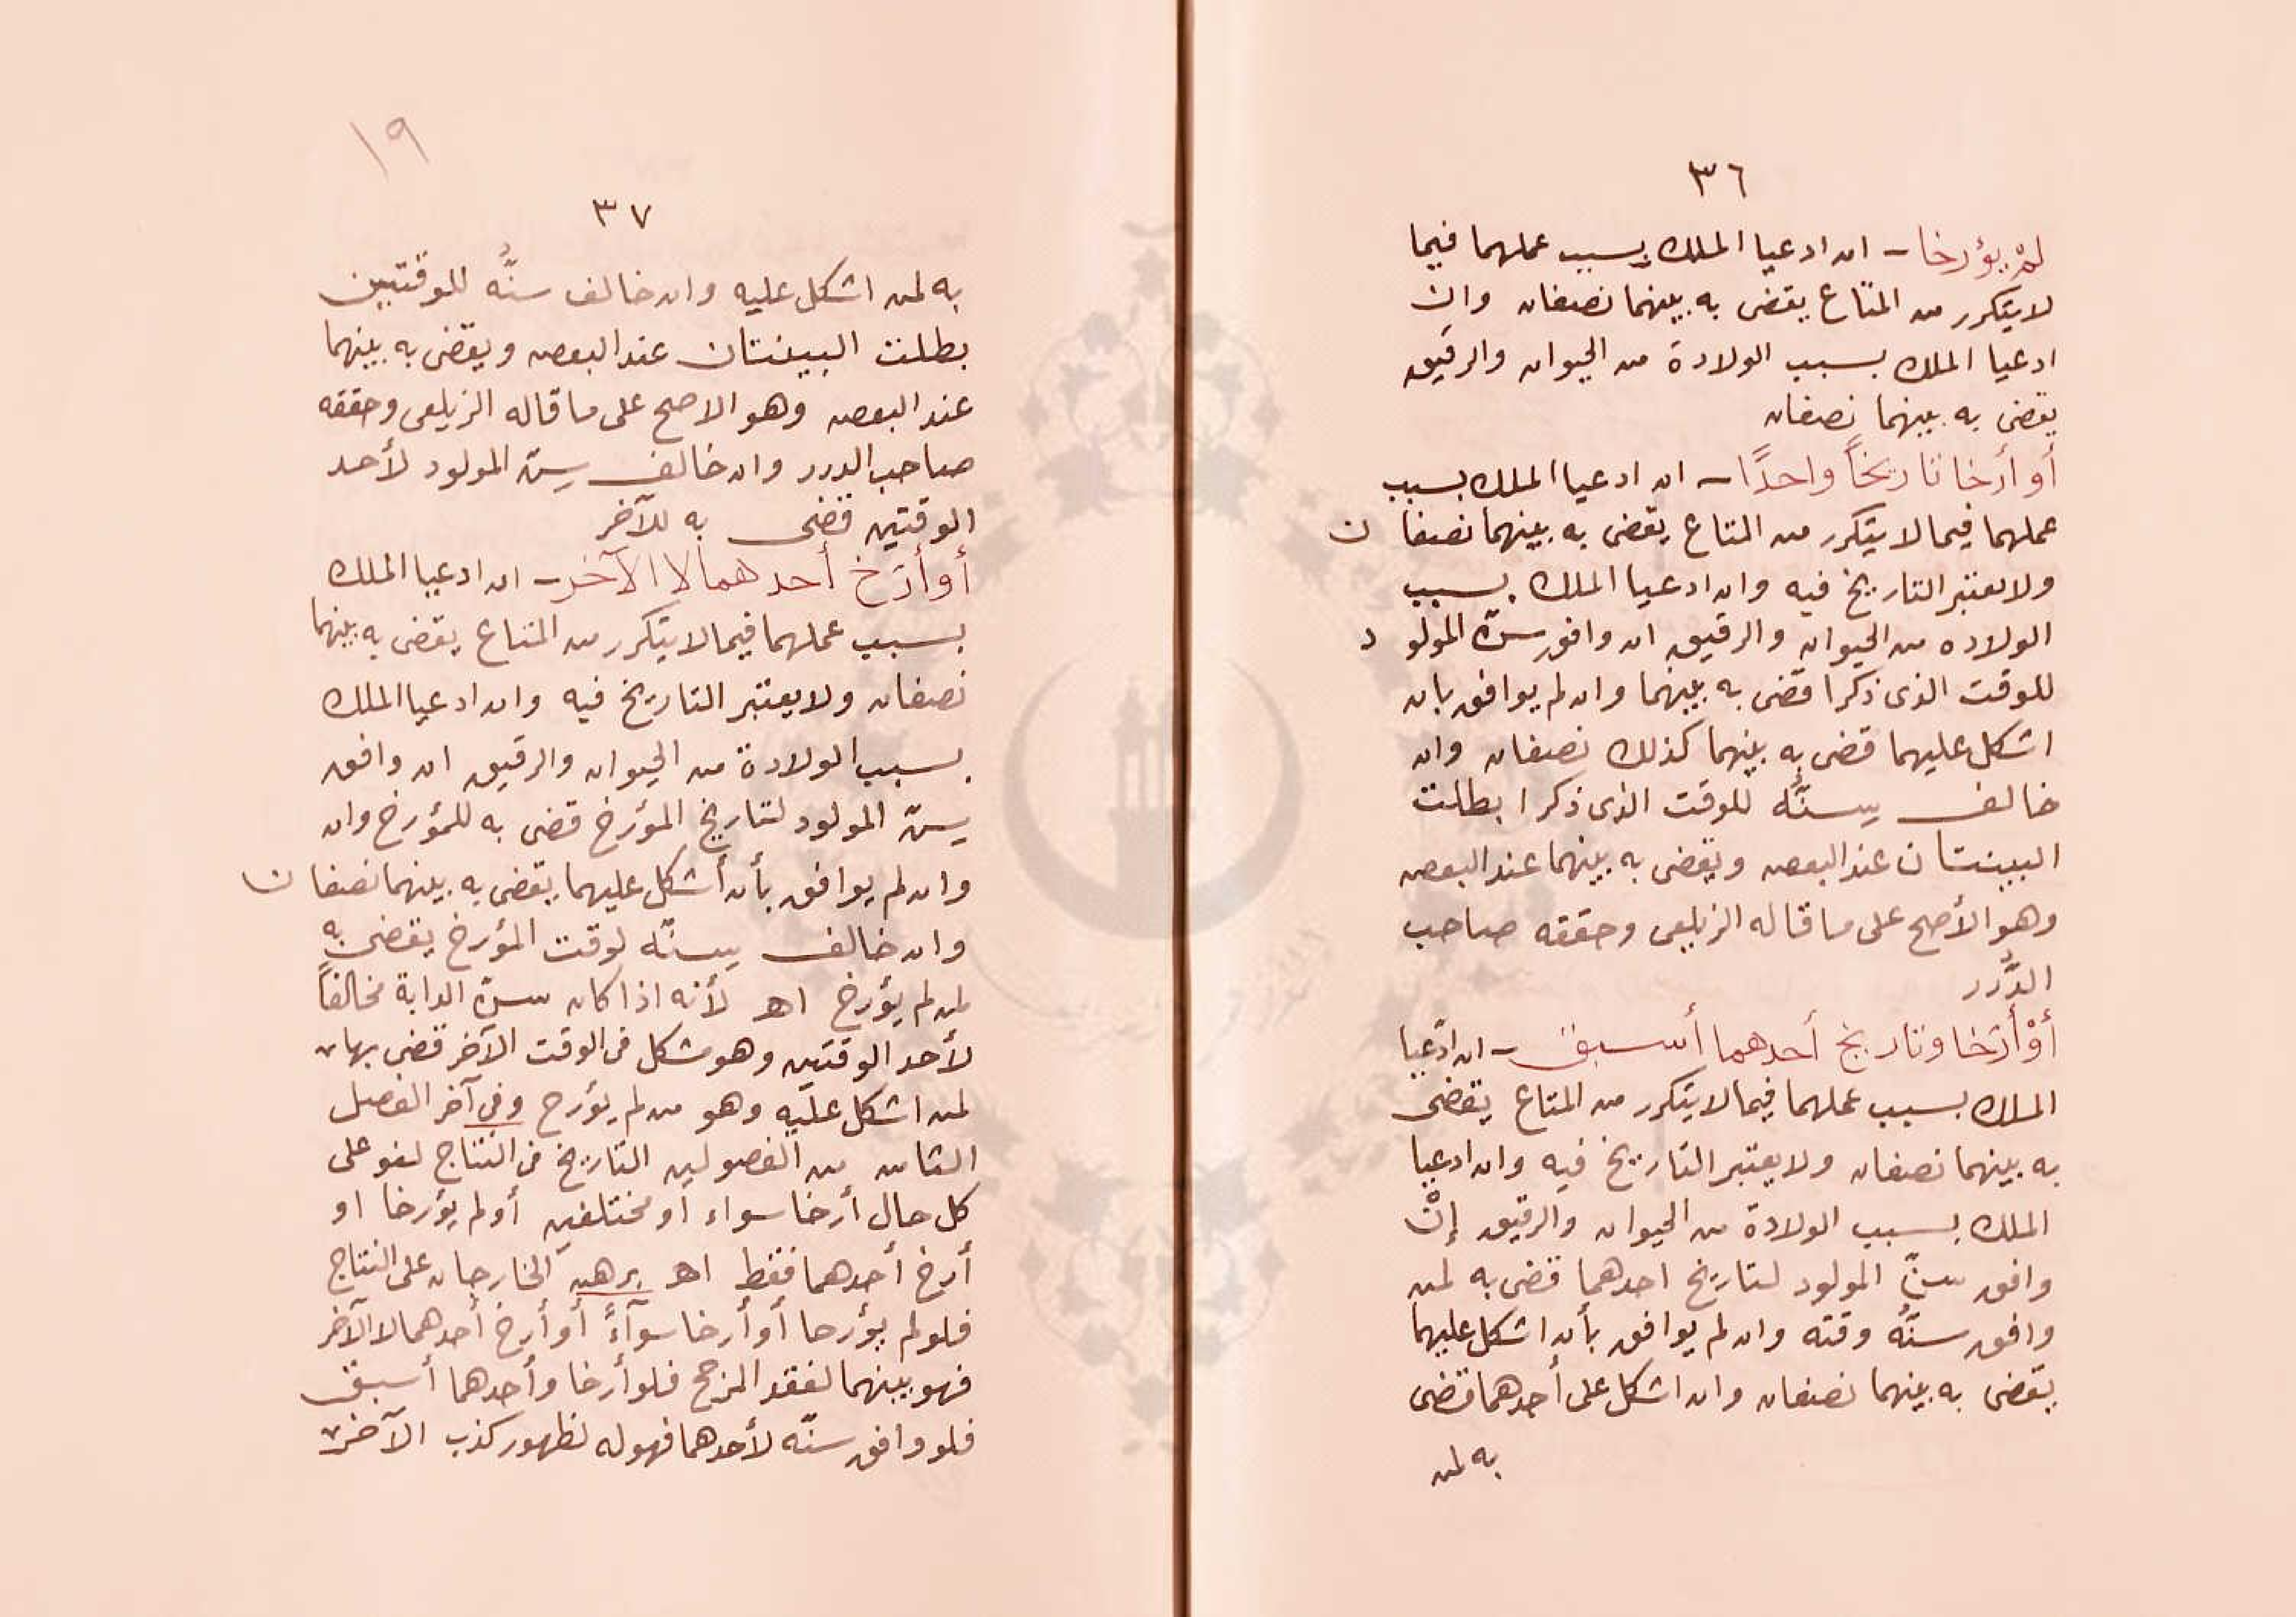 ٣٦
لمْ يؤرخا – ان ادعيا الملك بسبب عملهما فيما
لا يتكرر من المتاع يقضى به بينهما نصفان وان
ادعيا الملك بسبب الولادة من الحيوان والرقيق
يقضى به بينهما نصفان
أو أرخا تاريخاً واحدًا – ان ادعيا الملك بسبب
عملهما فيما لا يتكرر من المتاع يقضى به بينهما نصفان
ولا يعتبر التاريخ فيه وان ادعيا الملك بسبب
الولاده من الحيوان والرقيق ان وافق سنّ المولود
للوقت الذى ذكرا قضى به بينهما وان لم يوافق بان
اشكل عليهما قضى به بينهما كذلك نصفان وان
خالف سنُّه للوقت الذى ذكرا بطلت
البينتان عند البعض ويقضى به بينهما عند البعض
وهو الأصح على ما قاله الزيلعى وحققه صاحب
الدُّرر
أوْ أرّخا وتاريخ أحدهما أسبق – ان ادّعيا
الملك بسبب عملهما فيما لا يتكرر من المتاع يقضى
به بينهما نصفان ولا يعتبر التاريخ فيه وان ادعيا
الملك بسبب الولادة من الحيوان والرقيق إنْ
وافق سنّ المولود لتاريخ احدهما قضى به لمن
وافق سنُّه وقته وان لم يوافق بأن اشكل عليهما
يقضى به بينهما نصفان وان اشكل على أحدهما قضى
به لمن
١٩
٣٧
به لمن اشكل عليه وان خالف سنُّه للوقتين
بطلت البينتان عند البعض ويقضى به بينهما
عند البعض وهو الاصح على ما قاله الزيلعى وحققه
صاحب الدرر وان خالف سنّ المولود لأحد
الوقتين قضى به للآخر
أو أرّخ أحدهما لا الآخر – ان ادعيا الملك
بسبب عملهما فيما لا يتكرر من المتاع يقضى به بينهما
نصفان ولا يعتبر التاريخ فيه وان ادعيا الملك
بسبب الولادة من الحيوان والرقيق ان وافق
سنّ المولود لتاريخ المؤرخ قضى به للمؤرخ وان
وان لم يوافق بأن أشكل عليهما يقضى به بينهما نصفان
وان خالف سنّه لوقت المؤرخ يقضى به
لمن لم يؤرخ اهـ لأنه اذا كان سنّ الدابة مخالفاً
لأحد الوقتين وهو مشكل فى الوقت الآخر قضى بها
لمن اشكل عليه وهو من لم يؤرح وفى آخر الفصل
الثامن من الفصولين التاريخ فى النتاج لغو على
كل حال أرخا سواء أو مختلفين أو لم يؤرخا او
أرخ أحدهما فقط اهـ برهن الخارجان على النتاج
فلو لم يؤرحا أو أرخا سوآءً أو أرخ أحدهما لا الآخر
فهو بينهما لفقد المرجح فلو أرخا وأحدهما أسبق
فلو وافق سنّه لأحدهما فهو له لظهور كذب الآخر